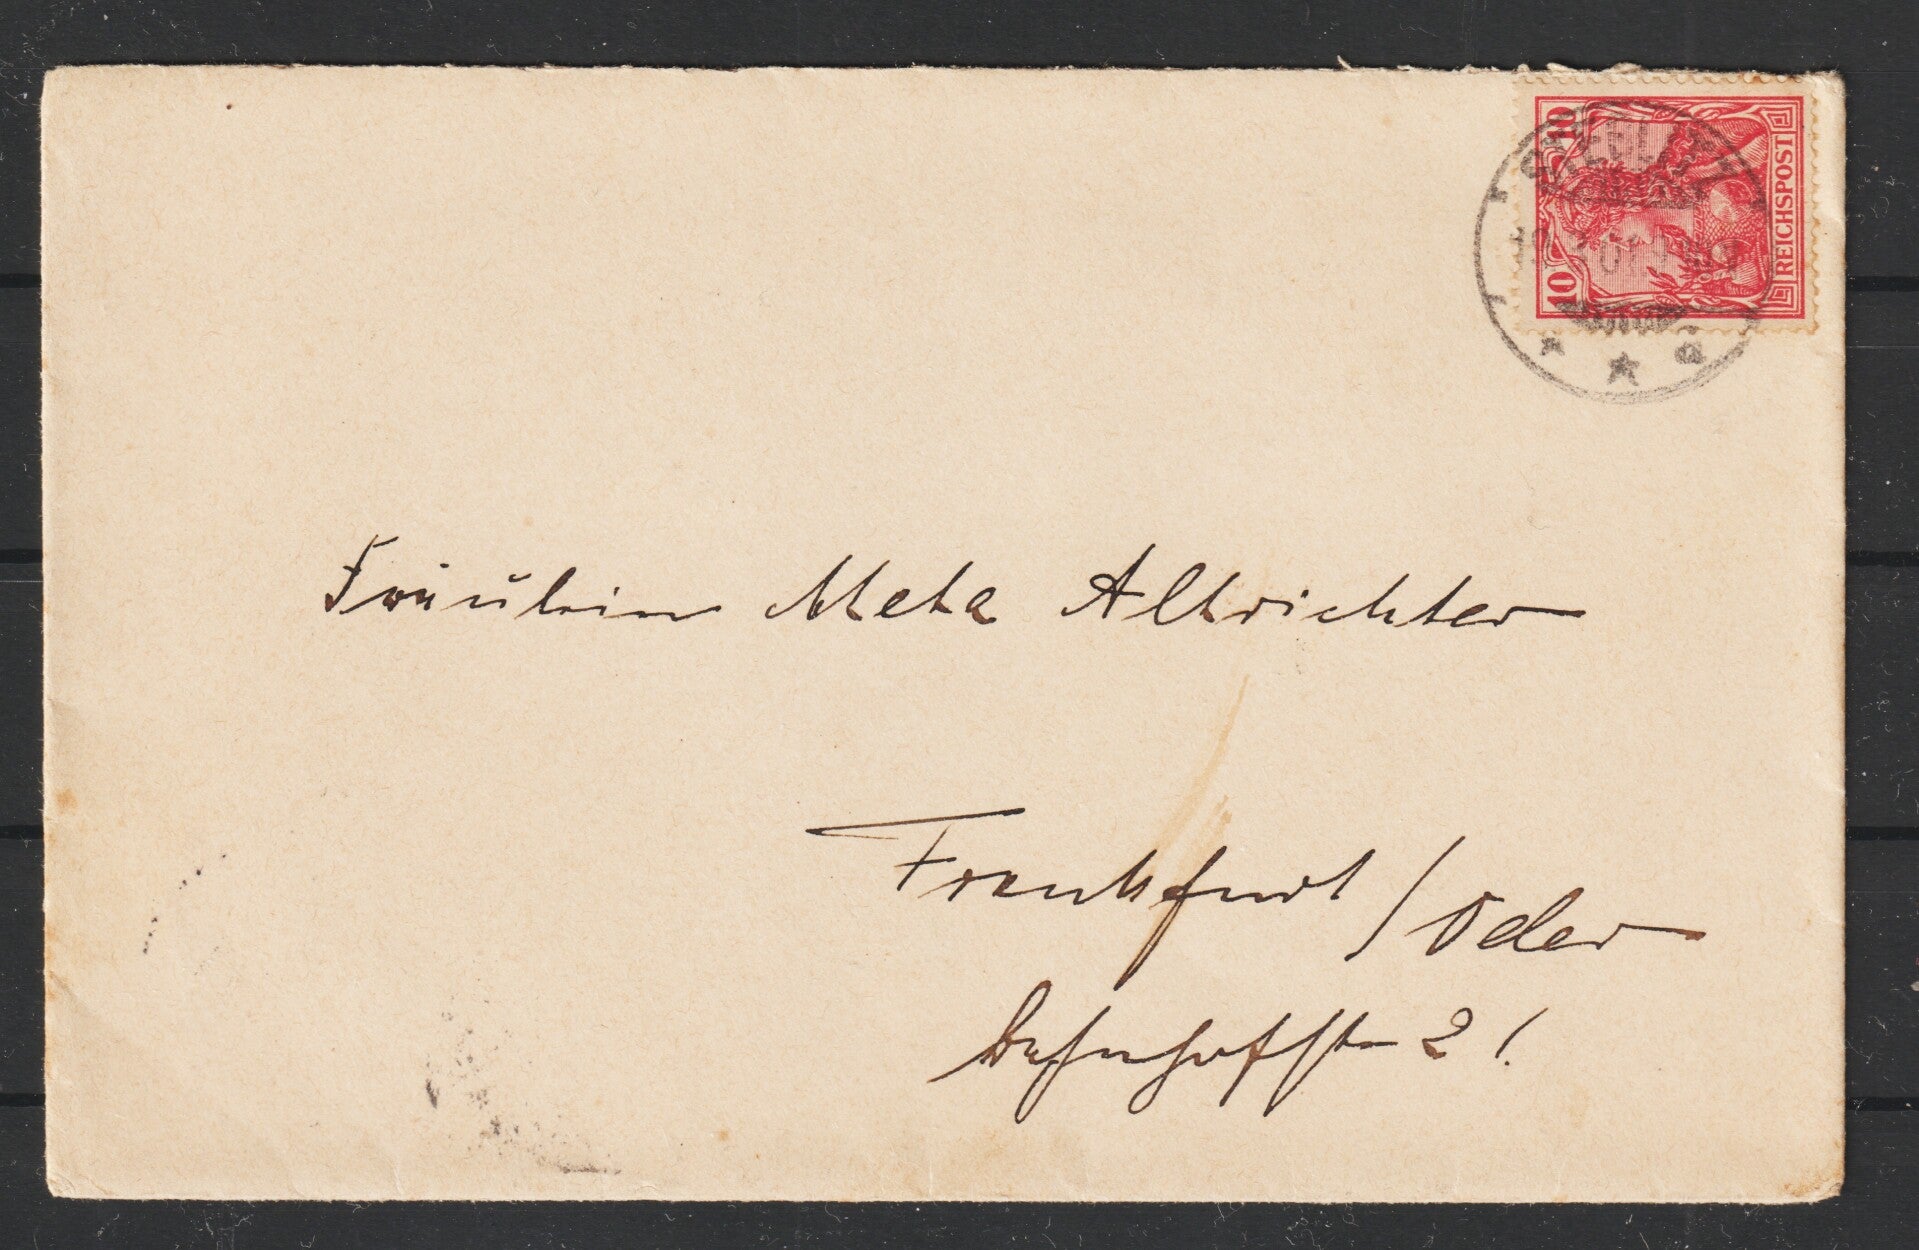 10
10
REICHSPOST
Fräulein Meta Altrichter
Frankfurt / Oder
Bahnhofstr 21.